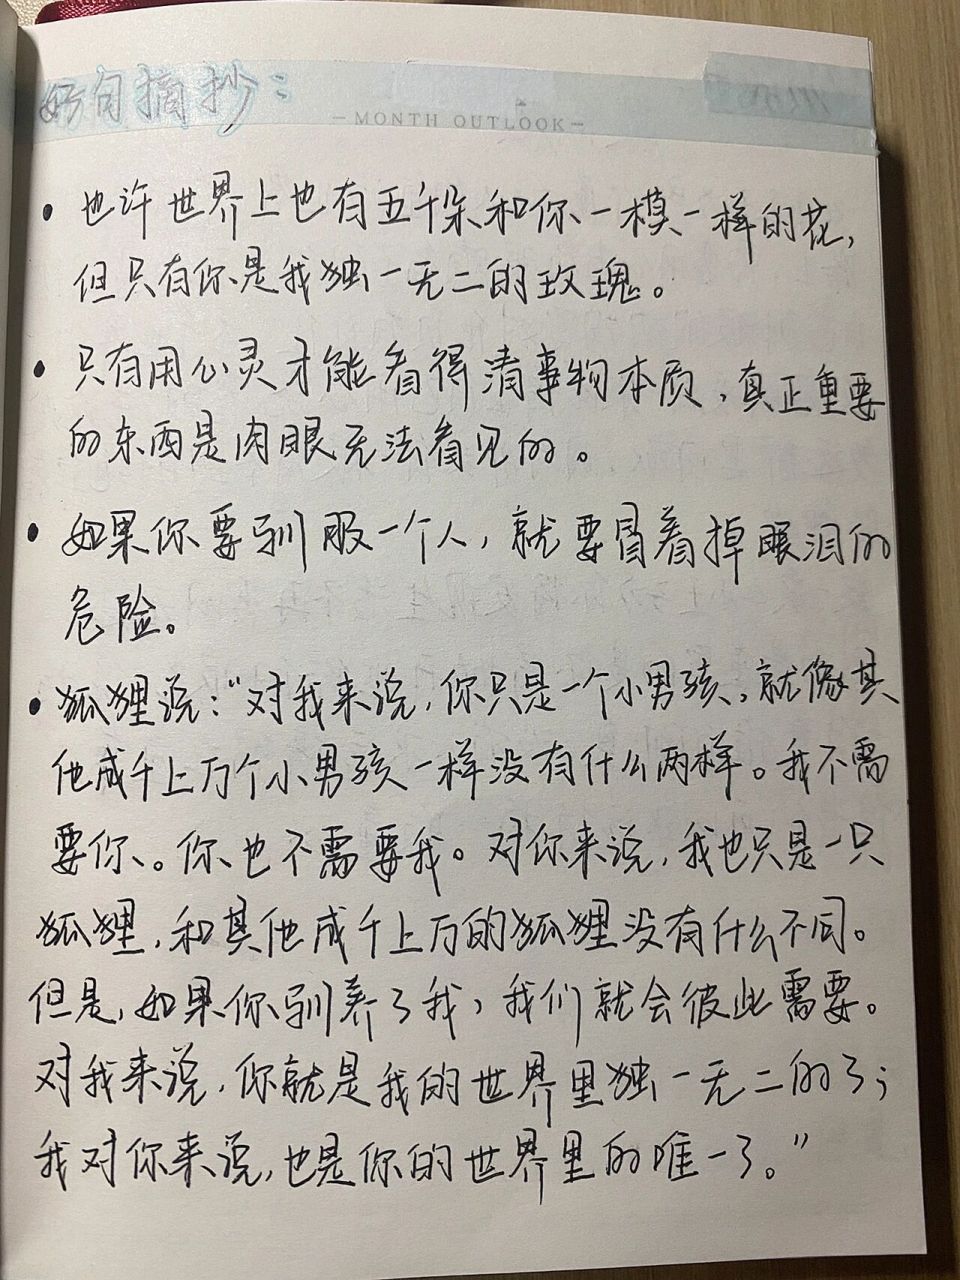 好句摘抄：
—MONTH OUTLOOK—
• 也许世界上也有五千朵和你一模一样的花，
但只有你是我独一无二的玫瑰。
• 只有用心灵才能看得清事物本质，真正重要
的东西是肉眼无法看见的。
• 如果你要驯服一个人，就要冒着掉眼泪的
危险。
• 狐狸说：“对我来说，你只是一个小男孩，就像其
他成千上万个小男孩一样没有什么两样。我不需
要你。你也不需要我。对你来说，我也只是一只
狐狸，和其他成千上万的狐狸没有什么不同。
但是，如果你驯养了我，我们就会彼此需要。
对我来说，你就是我的世界里独一无二的了；
我对你来说，也是你的世界里的唯一了。”